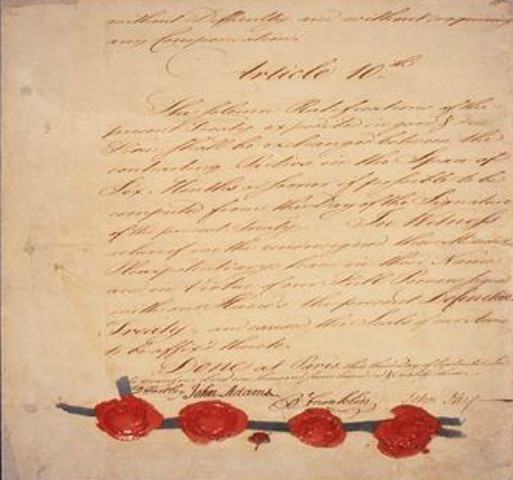 without Difficulty and without requiring
any Compensation.
Article 10th
The solemn Ratifications of the
present Treaty expedited in good & due
Form shall be exchanged between the
contracting Parties in the Space of
Six Months or sooner if possible to be
computed from the Day of the Signature
of the present Treaty. In Witness
whereof we the undersigned their Ministers
Plenipotentiary have in their Name
and in Virtue of our Full Powers signed
with our Hands the present Definitive
Treaty, and caused the Seals of our Arms
to be affix'd thereto.
Done at Paris, this third day of September
D Hartley John Adams B Franklin John Jay